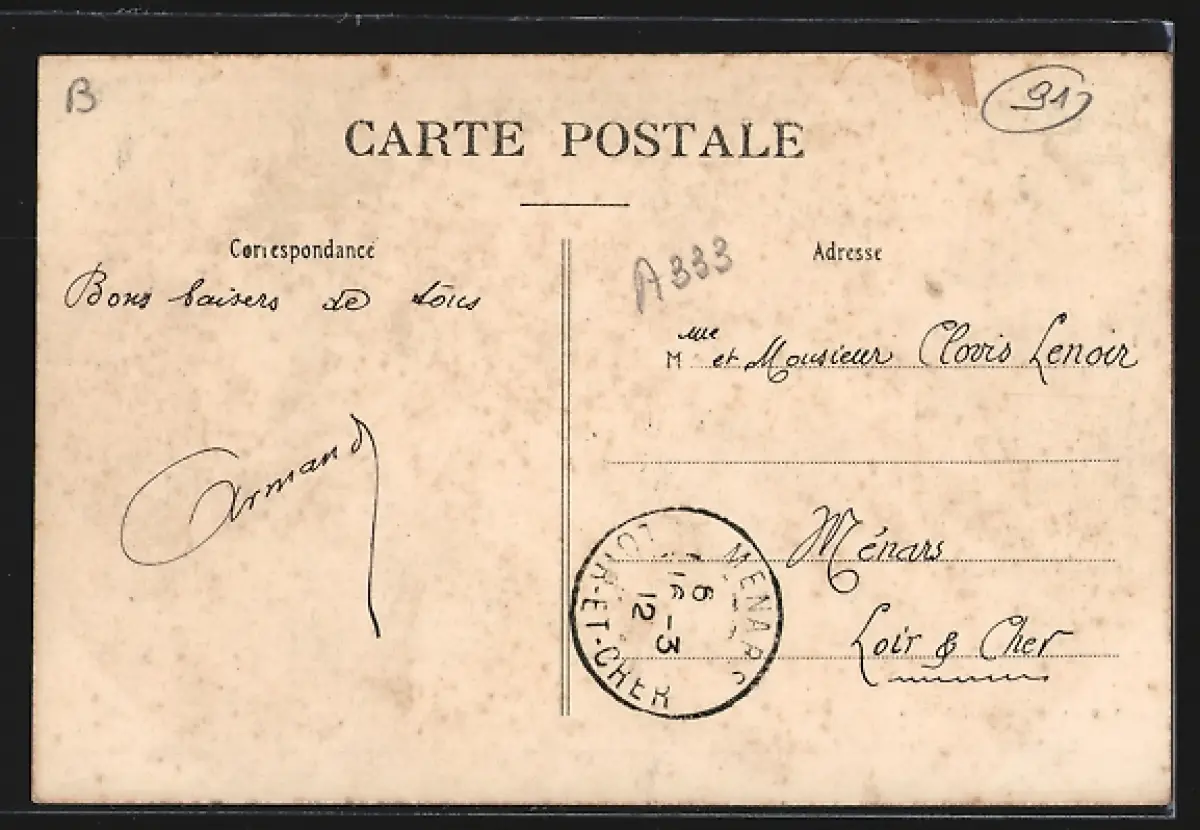 B
91
CARTE POSTALE
Correspondance
Bons baisers de tous
Armand
A333
Adresse
Mme et Monsieur Clovis Lenoir
Ménars
Loir & Cher
MENARS
6 -3
12
LOIR-ET-CHER